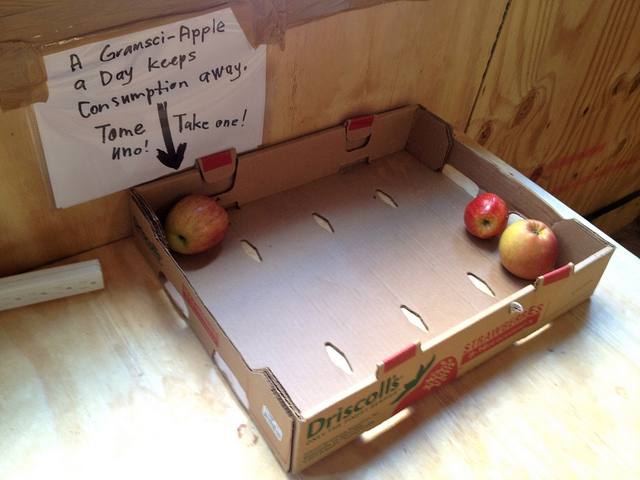 A Gramsci-Apple
a Day keeps
Consumption away.
Tome Take one!
uno!
Driscoll's
STRAWBERRIES